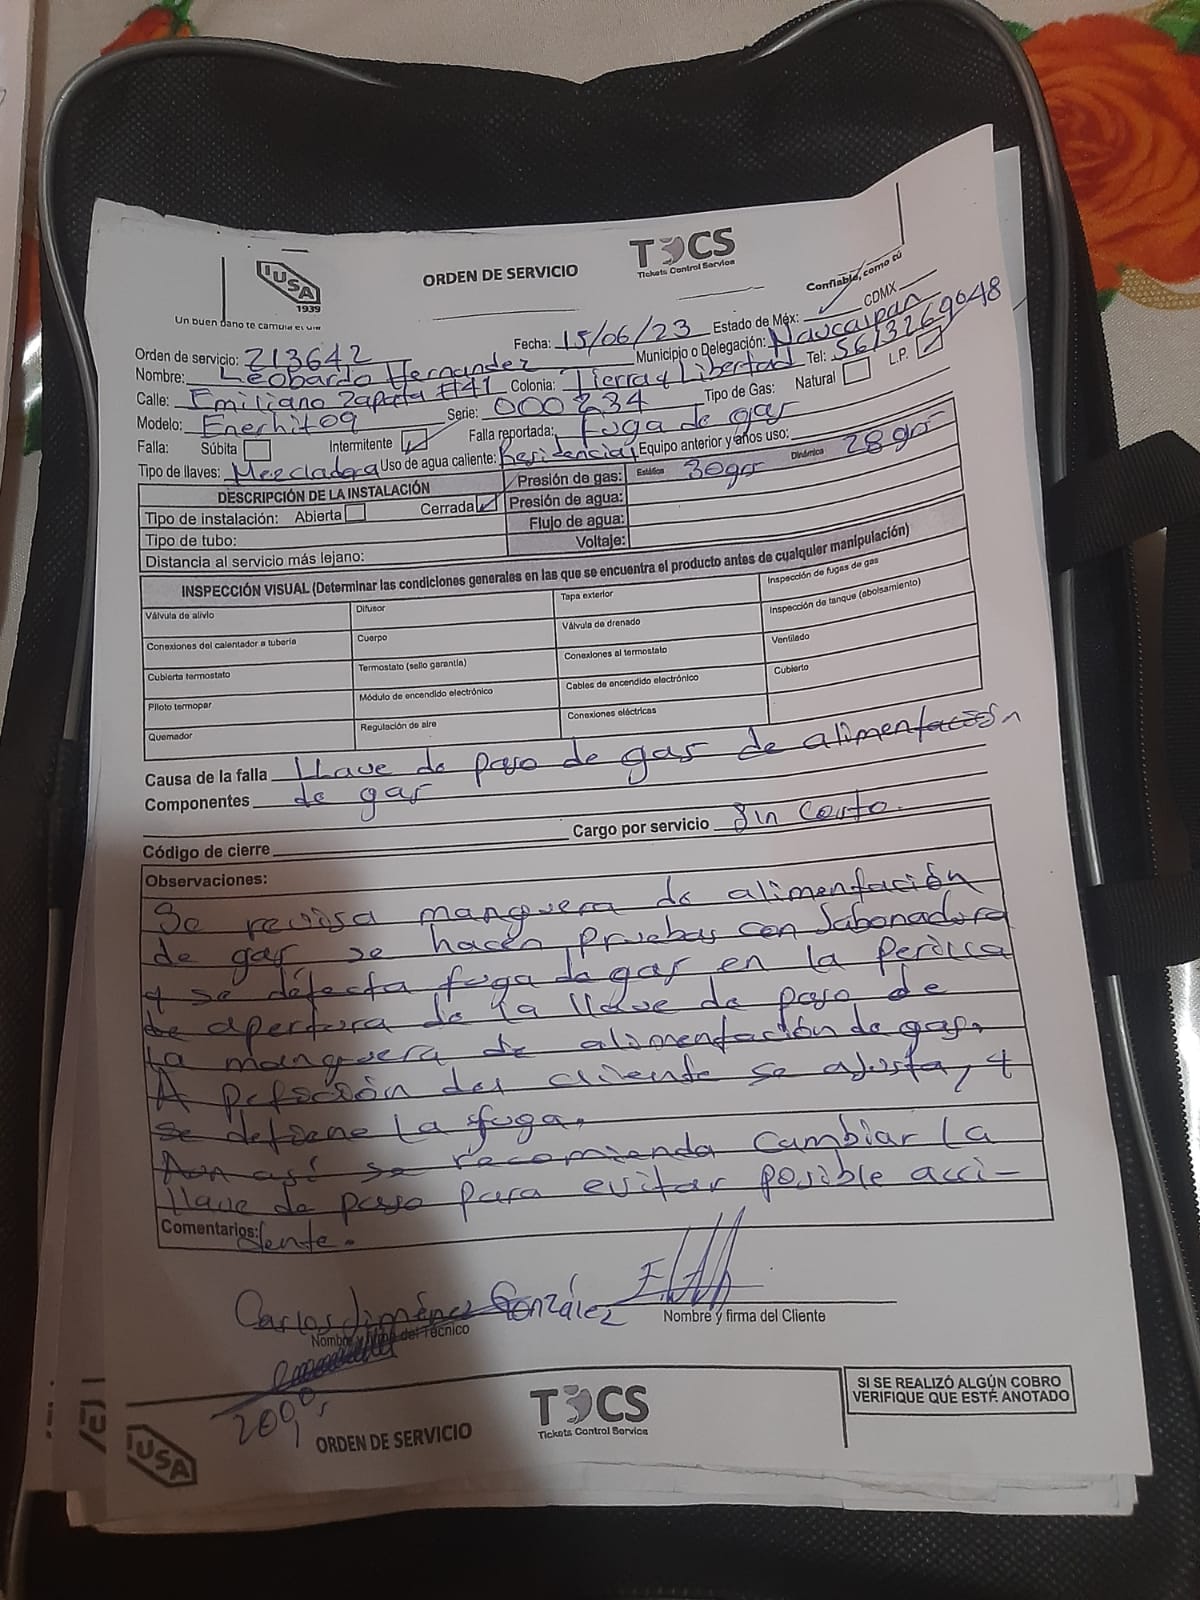 IUSA
1939
ORDEN DE SERVICIO
TCS
Tickets Control Service
Confiable, como tú
Orden de servicio: 213642 Fecha: 15/06/23 Estado de Méx: CDMX
Nombre: Leobardo Hernandez Municipio o Delegación: Naucalpan
Calle: Emiliano Zapata #41 Colonia: Tierra y Libertad Tel: 5613269048
Modelo: Enerhit 09 Serie: 000234 Tipo de Gas: Natural L.P.
Falla: Súbita Intermitente Falla reportada: Fuga de gas
Tipo de llaves: Mezcladora Uso de agua caliente: Residencial Equipo anterior y años uso:
DESCRIPCIÓN DE LA INSTALACIÓN Presión de gas: Estática 30gr Dinámica 28gr
Tipo de instalación: Abierta Cerrada Presión de agua:
Tipo de tubo: Flujo de agua:
Distancia al servicio más lejano: Voltaje:
INSPECCIÓN VISUAL (Determinar las condiciones generales en las que se encuentra el producto antes de cualquier manipulación)
Válvula de alivio Difusor Tapa exterior Inspección de fugas de gas
Conexiones del calentador a tubería Cuerpo Válvula de drenado Inspección de tanque (abolsamiento)
Cubierta termostato Termostato (sello garantía) Conexiones al termostato Ventilado
Piloto termopar Módulo de encendido electrónico Cables de encendido electrónico Cubierto
Quemador Regulación de aire Conexiones eléctricas
Causa de la falla Llave de paso de gas de alimentación
Componentes de gas
Código de cierre Cargo por servicio Sin Costo.
Observaciones:
Se revisa manguera de alimentación
de gas se hacen pruebas con Jabonadura
y se detecta fuga de gas en la perilla
de apertura de la llave de paso de
la manguera de alimentación de gas.
A petición del cliente se ajusta, y
se detiene la fuga.
Aun así se recomienda cambiar la
llave de paso para evitar posible acci-
Comentarios: dente.
Carlos Jiménez González
Nombre y firma del Técnico Nombre y firma del Cliente
SI SE REALIZÓ ALGÚN COBRO
VERIFIQUE QUE ESTÉ ANOTADO
TCS
Tickets Control Service
IUSA
ORDEN DE SERVICIO